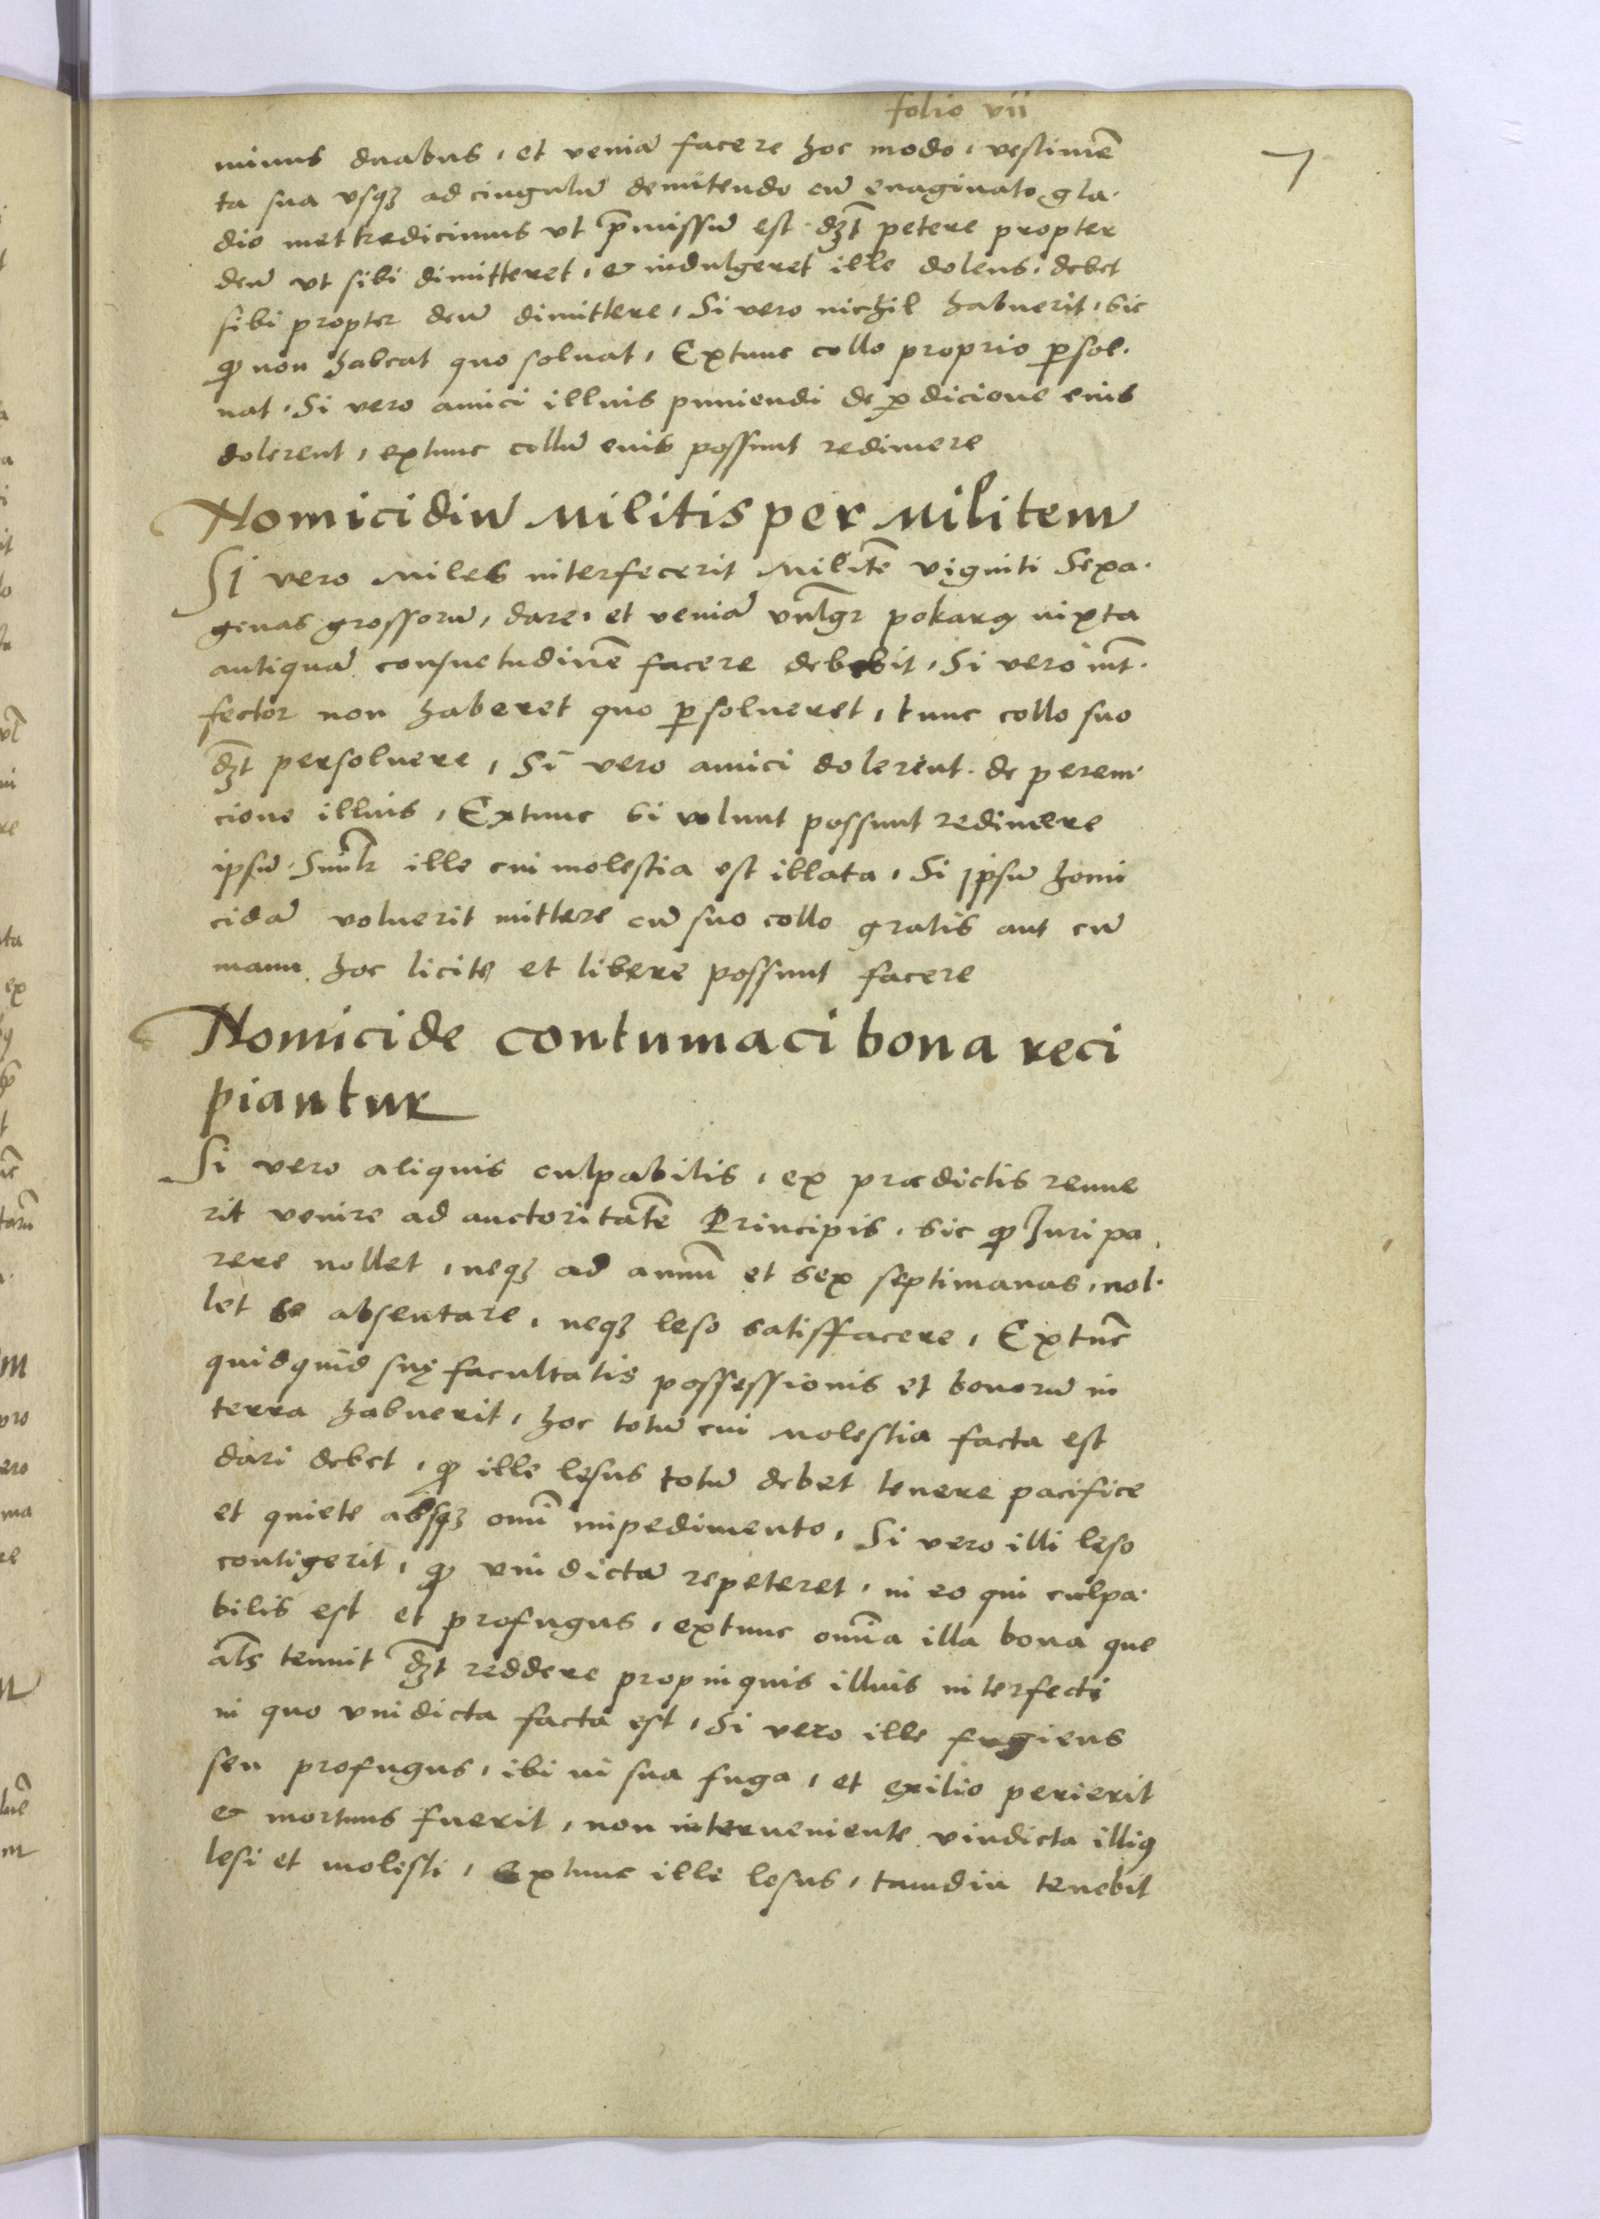 folio vii
7
minus duabus, et veniā facere hoc modo, vestimē
ta sua usqȝ ad cingulū demittendo cū evaginato gla·
dio met tredicimus ut p̄missum est dȝt petere propter
deū ut sibi dimitteret, & indulgeret ille dolens, debet
sibi propter deū dimittere, Si vero nichil habuerit, sic
ꝙ non habeat quo solvat, Extunc collo proprio ꝑsol·
vat, Si vero amici illius puniendi de ꝑdicione eius
dolerent, extunc collū eius possunt redimere
Homicidiū Militis per Militem
Si vero Miles interfecerit Militē viginti Sexa·
genas grossorū, dare, et veniā vulgr pokarꝙ iuxta
antiquā consuetudinē facere debebit, Si vero int̄·
fector non haberet quo ꝑsolveret, tunc collo suo
dȝt persolvere, Si vero amici dolerent de perem·
cione illius, Extunc si volunt possunt redimere
ipsū Simlr ille cui molestia est illata, Si ipsum homi
cidā voluerit mittere cū suo collo gratis aut cū
manu hoc licite et libere possunt facere
Homicide contumaci bona reci
piantur
Si vero aliquis culpabilis, ex prædictis renue
rit venire ad auctoritatē Principis, sic ꝙ Juri pa
rere nollet, neqȝ ad annū et sex septimanas, nol·
let se absentare, neqȝ leso satisffacere, Extūc
quidquid suę facultatis possessionis et bonorū in
terra habuerit, hoc totū cui Molestia facta est
dari debet, ꝙ ille lesus totū debet tenere pacifice
et quiete absqȝ omī impedimento, Si vero illi leso
contigerit, ꝙ vindictā repeteret, in eo qui culpa·
bilis est et profugus, extunc omīa illa bona que
als tenuit dȝt reddere propinquis illius interfecti
in quo vindicta facta est, Si vero ille fugiens
seu profugus, ibi in sua fuga, et exilio perierit
& mortuus fuerit, non interveniente vindicta illiꝰ
lesi et molesti, Extunc ille lesus, tamdiu tenebit